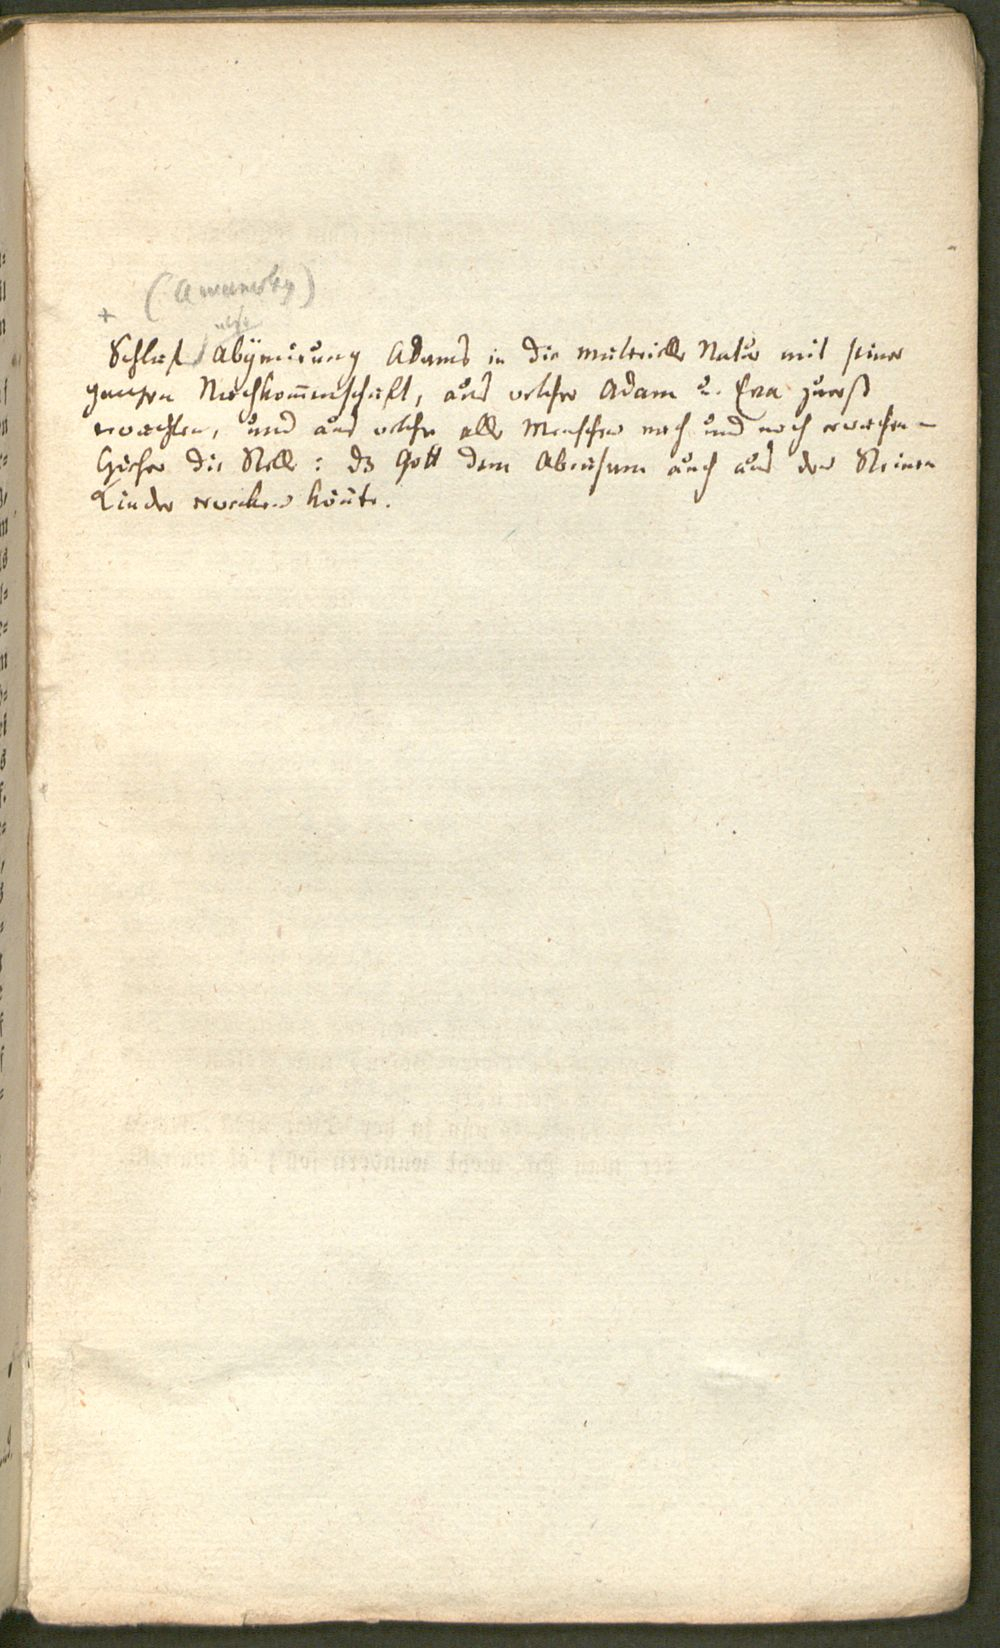 +
Schlaf Abymirung Adams in die materielle Natur mit seiner
ganzen Nachkom̄enschaft, aus welcher Adam u. Eva zuerst
erwachten, und aus welcher alle Menschen nach und nach erwachen –
Hieher die Stelle: dz Gott dem Abraham auch aus den Steinen
Kinder erwecken könte.